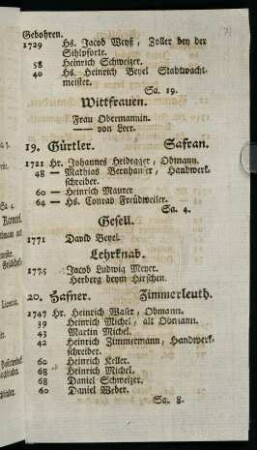 Gebohren.
1729 Hs. Jacob Weyß, Zoller bey der
Sihlpforte.
58 Heinrich Schweizer.
40 Hs. Heinrich Beyel Stadtwacht-
meister.
Sa. 19.
Wittfrauen.
Frau Obermannin.
—— von Leer.
19. Gürtler. Safran.
1721 Hr. Johannes Heidegger, Obmann.
48 — Mathias Bernhauser, Handwerk-
schreiber.
60 — Heinrich Maurer
64 — Hs. Conrad Freüdweiler.
Sa. 4.
Gesell.
1771 David Beyel.
Lehrknab.
1775 Jacob Ludwig Meyer.
Herberg beym Hirschen.
20. Hafner. Zimmerleuth.
1747 Hr. Heinrich Waser, Obmann.
39 Heinrich Michel, alt Obmann.
43 Martin Michel.
42 Heinrich Zimmermann, Handwerk-
schreiber.
60 Heinrich Keller.
68 Heinrich Michel.
68 Daniel Schweizer.
60 Daniel Weber.
Sa. 8.